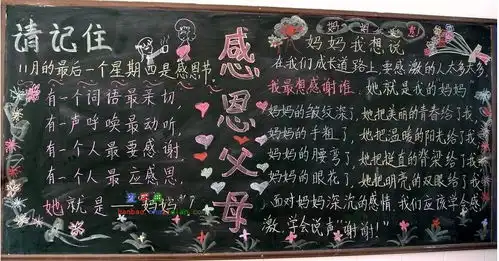 请记住
11月的最后一个星期四是感恩节,
有一个词语最亲切,
有一声呼唤最动听,
有一个人最要感谢
有一个人最应感恩
她就是——"妈妈"?
感恩父母
妈妈我想说
在我们成长道路上,要感激的人太多太多,
我最想感谢谁,她就是我的妈妈
妈妈的皱纹深了,她把美丽的青春给了我,
妈妈的手粗了,她把温暖的阳光给了我,
妈妈的腰弯了,她把挺直的脊梁给了我,
妈妈的眼花了,她把明亮的双眼给了我,
面对妈妈深沉的感情,我们应该学会感
激,学会说声"谢谢!"